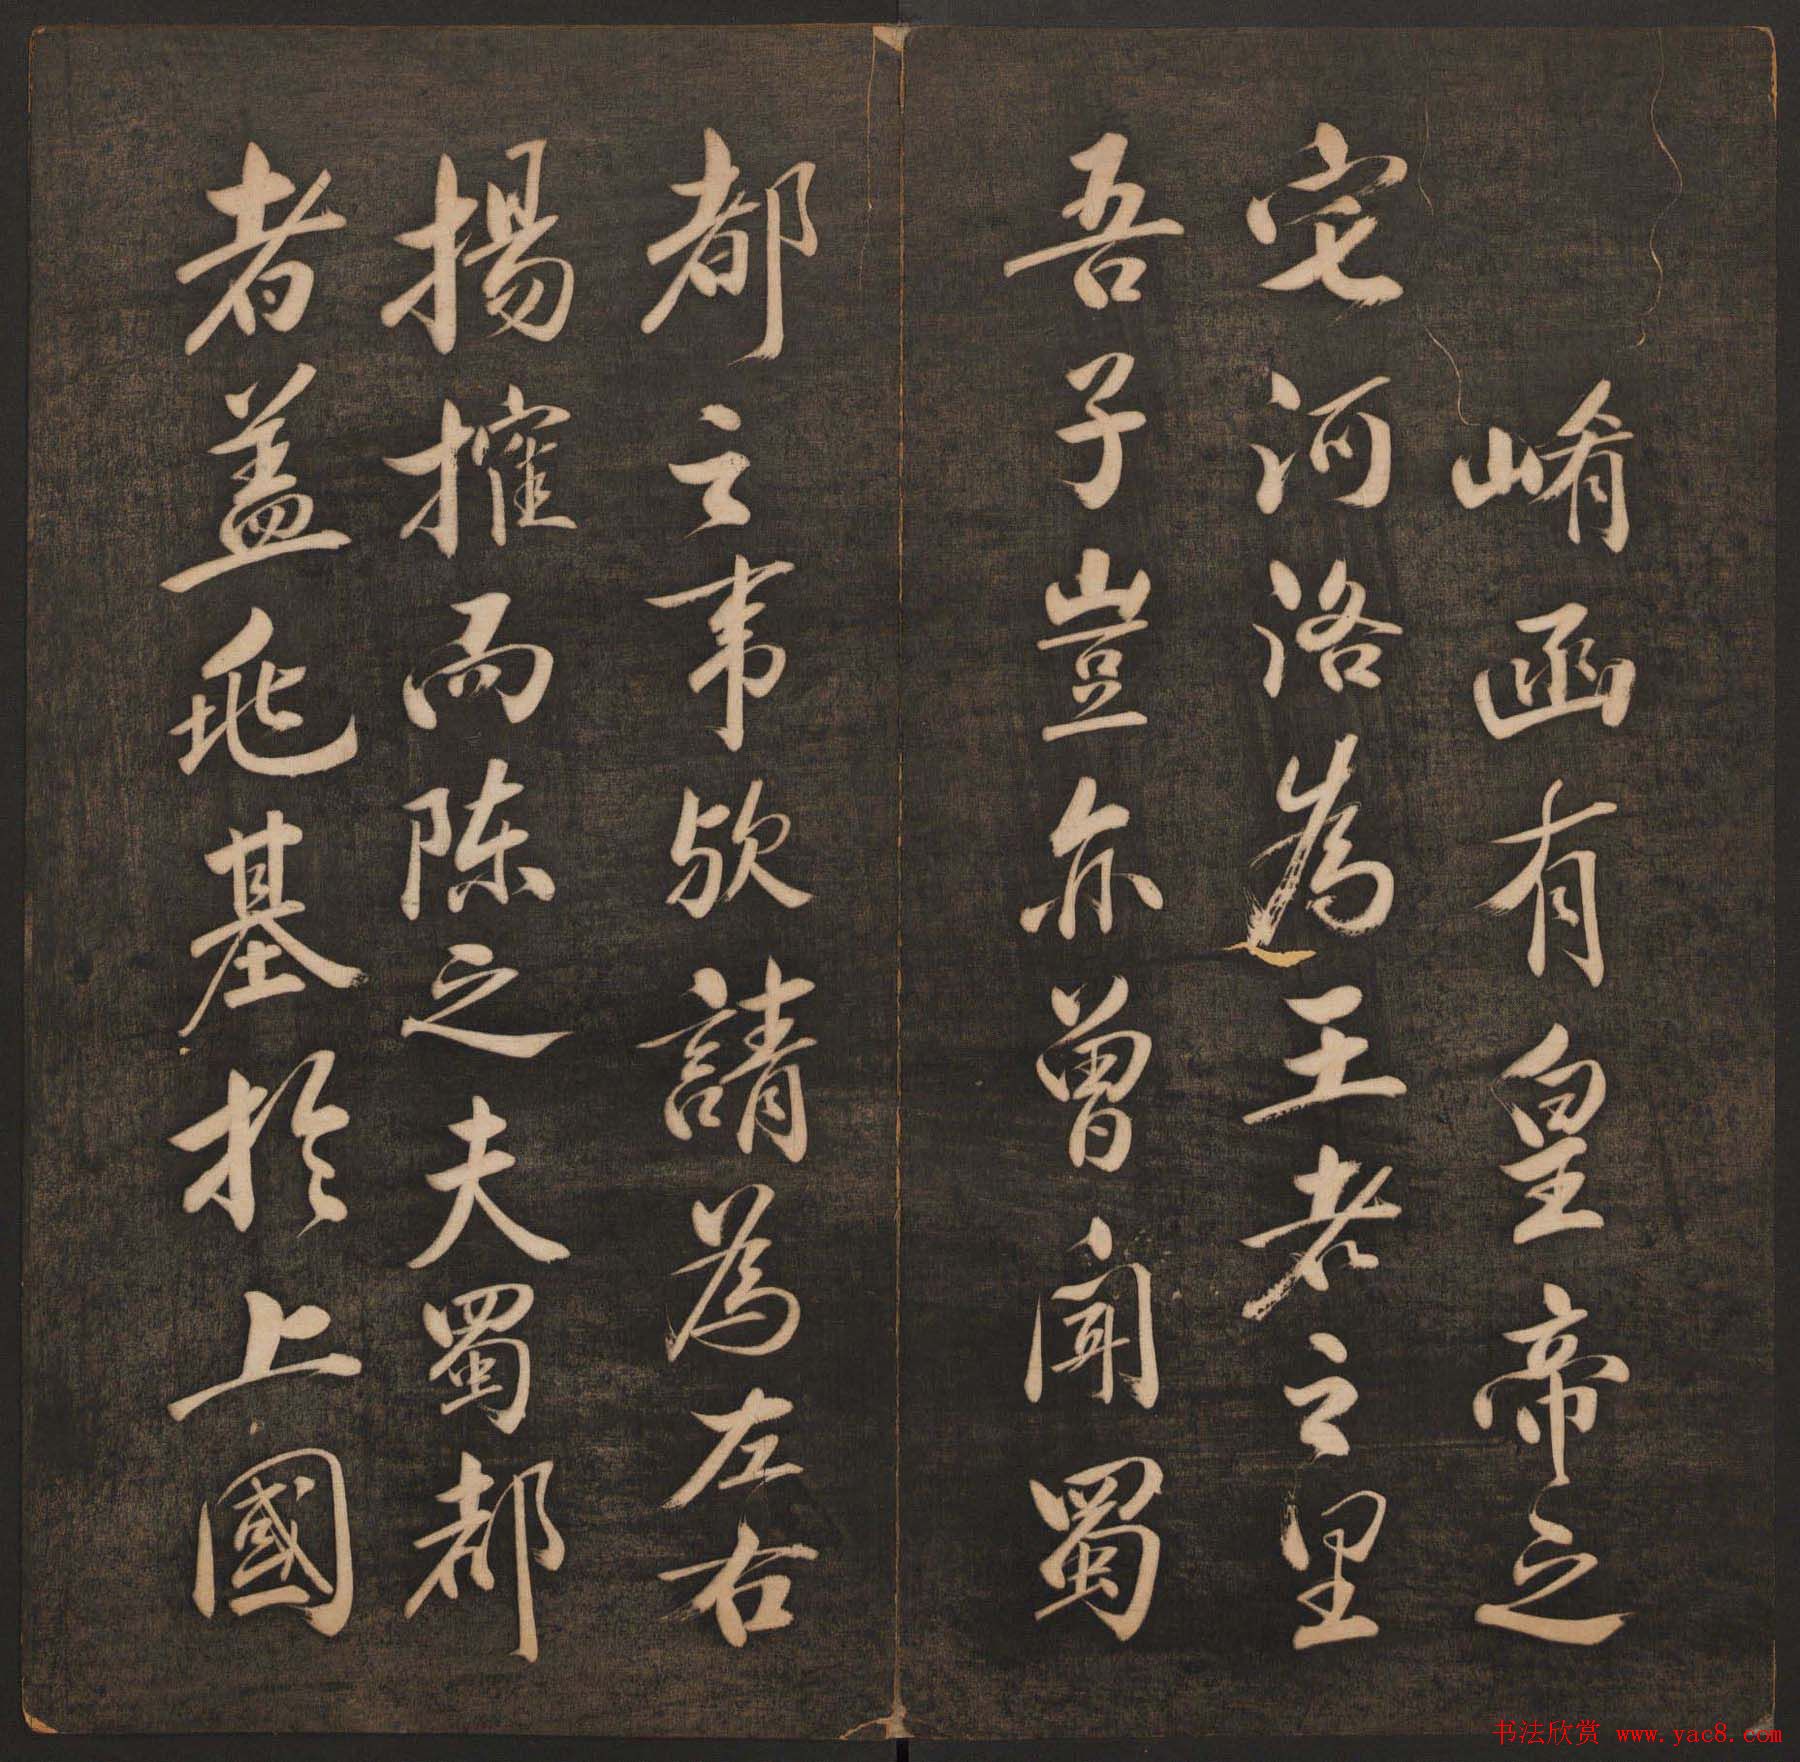 崤函有皇帝之
宅河洛為王者之里
吾子豈亦曾聞蜀
都之事歟請為左右
揚搉而陳之夫蜀都
者蓋兆基於上國
书法欣赏 www.yac8.com